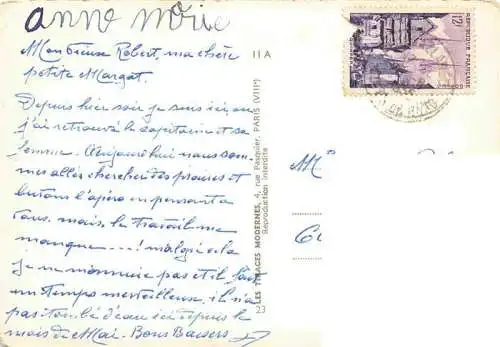 anne marie
Mon vieux Robert, ma chère
petite Margot.
Depuis hier soir je suis ici, ou
j'ai retrouvé le capitaine et sa
femme. Aujourd'hui nous som-
mes allés chercher des praires et
buvons l'apéro en pensant a
vous. mais, le travail me
manque ....! malgré cela
je ne m'ennuie pas et il fait
un temps merveilleux, il n'a
pas tombé d'eau ici depuis le
mois de Mai. Bons Baisers
11A
LES TIRAGES MODERNES, 4, rue Pasquier, PARIS (VIIIe)
Reproduction interdite
23
12F
REPUBLIQUE FRANÇAISE
POSTES
M